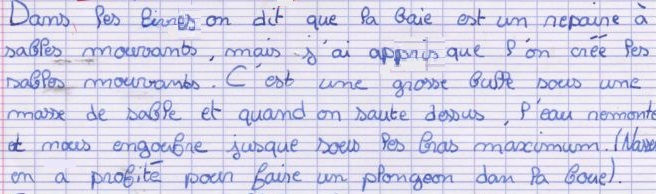 Dans les livres on dit que la baie est un repaire à
sables mouvants, mais j'ai appris que l'on crée les
sables mouvants. C'est une grosse bulle sous une
masse de sable et quand on saute dessus, l'eau remonte
et nous engoufre jusque sous les bras maximum. (
en a profité pour faire un plongeon dan la boue).